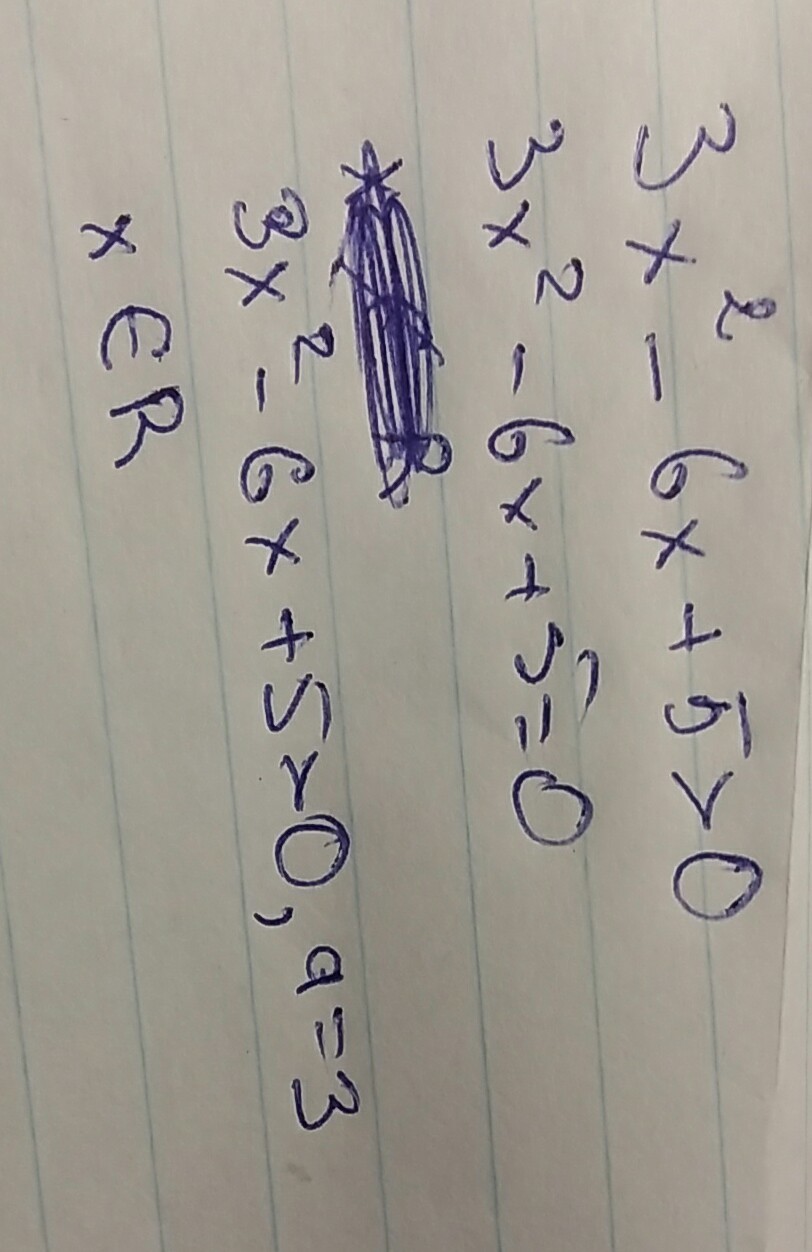 3x² - 6x + 5 > 0
3x² - 6x + 5 = 0
3x² - 6x + 5 > 0, a = 3
x ∈ R